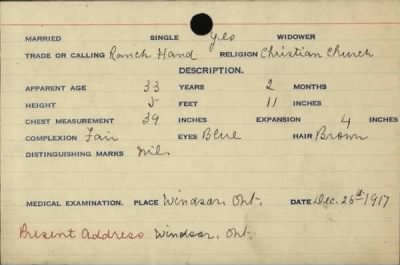 MARRIED SINGLE Yes WIDOWER
TRADE OR CALLING Ranch Hand RELIGION Christian Church
DESCRIPTION.
APPARENT AGE 33 YEARS 2 MONTHS
HEIGHT 5 FEET 11 INCHES
CHEST MEASUREMENT 39 INCHES EXPANSION 4 INCHES
COMPLEXION Fair EYES Blue HAIR Brown
DISTINGUISHING MARKS Nil.
MEDICAL EXAMINATION. PLACE Windsor, Ont. DATE Dec. 26th 1917
Present Address Windsor, Ont.